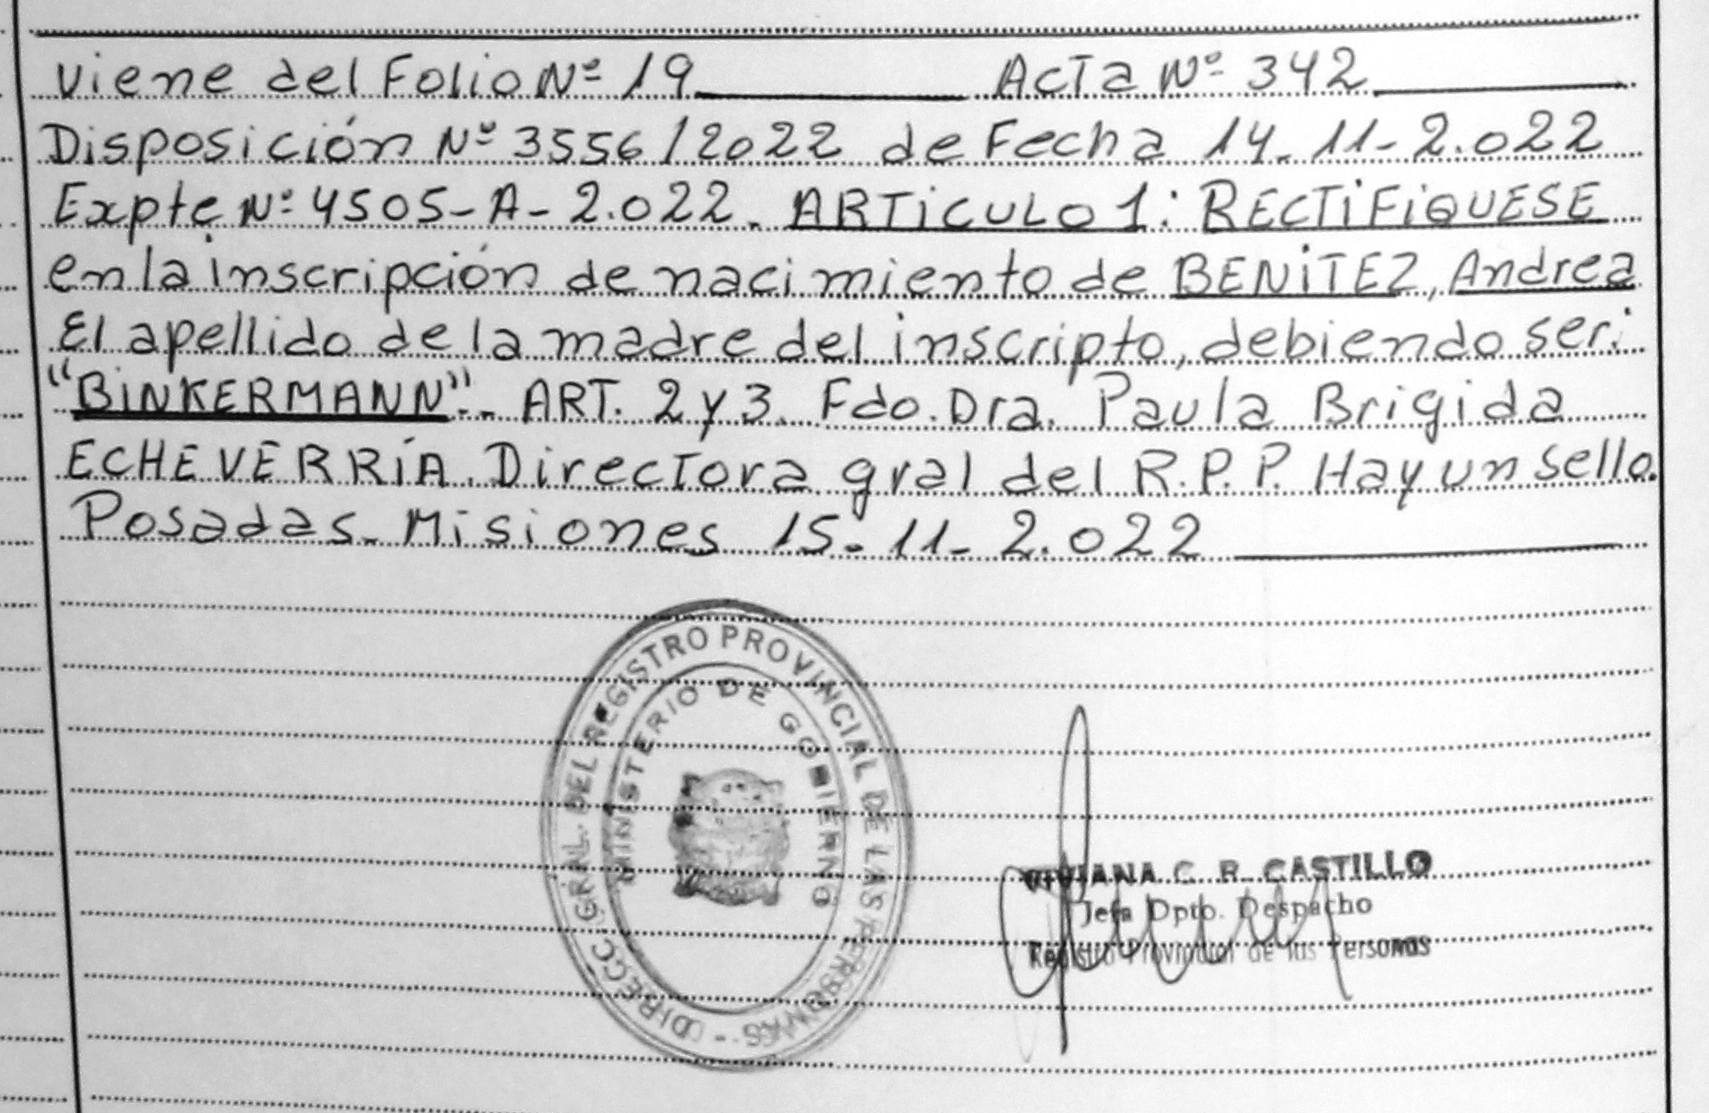 Viene del Folio Nº 19 Acta Nº 342
Disposición Nº 3556/2022 de Fecha 14-11-2.022
Expte Nº 4505-A-2.022. ARTiCULO 1: RECTiFiQUESE
en la inscripción de nacimiento de BENiTEZ, Andrea
El apellido de la madre del inscripto, debiendo ser:
"BiNKERMANN".- ART. 2 y 3. Fdo. Dra. Paula Brigida
ECHEVERRÍA. Directora gral del R.P.P. Hay un sello.
Posadas- Misiones 15-11-2.022
DIRECC GRAL. DEL REGISTRO PROVINCIAL DE LAS PERSONAS -
MINISTERIO DE GOBIERNO
VIVIANA C. R. CASTILLO
Jefa Dpto. Despacho
Registro Provincial de las Personas